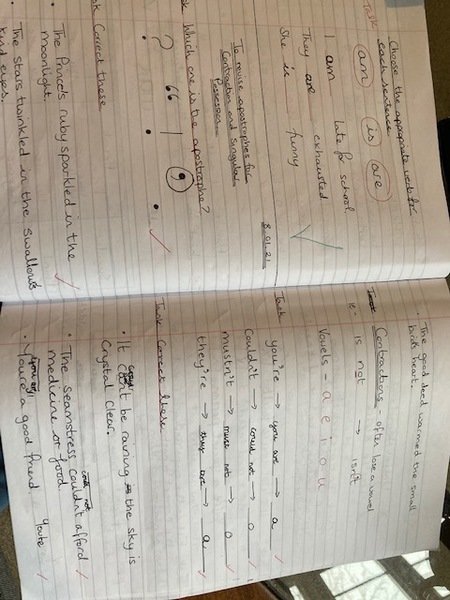 Choose the appropriate verb for
each sentence
Task
am is are
I am late for school
They are exhausted
She is funny
8.01.21
To revise apostrophes for
Contraction and Singular
Possession.
Which one is the apostrophe?
? • 66 / , •
Correct these
• The Prince's ruby sparkled in the
moonlight.
• The stars twinkled in the Swallow's
kind eyes.
• The good deed warmed the small
bird's heart.
Contractions often lose a vowel
ie - is not → isn't
Vowels - a e i o u
Task
you're → you are → a
Couldn't → could not → o
mustn't → must not → o
they're → they are → a
Task Correct these
• It can't be raining the sky is
Crystal Clear.
could not
• The seamstress couldn't afford
medicine or food.
you are
• You're a good friend.